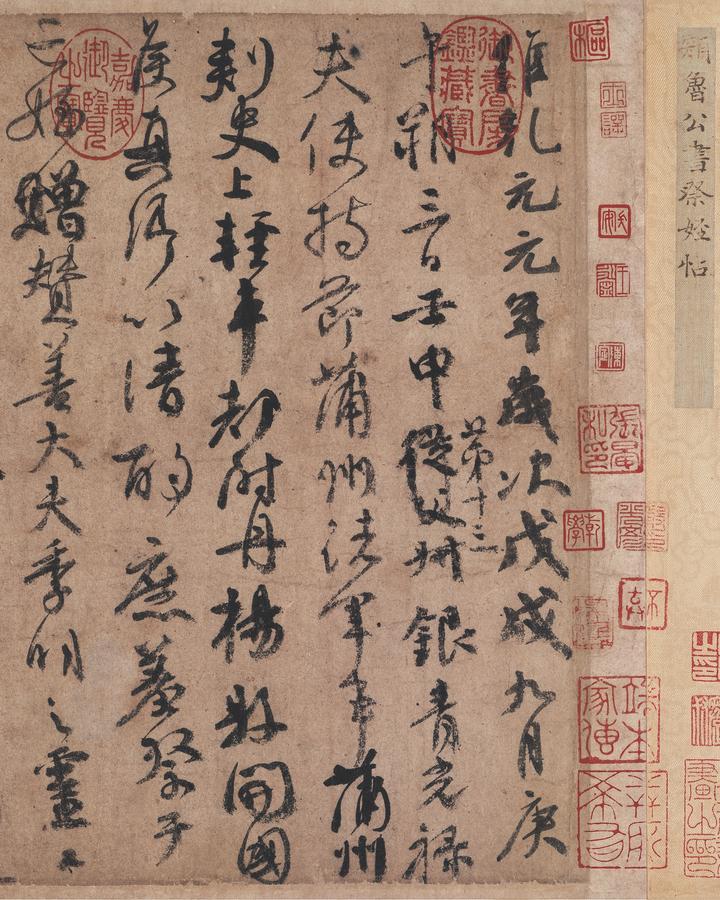 顏魯公書祭姪帖
維乾元元年歲次戊戌九月庚
午朔三日壬申第十三從父叔銀青光祿
夫使持節蒲州諸軍事蒲州
刺史上輕車都尉丹楊縣開國
侯真卿以清酌庶羞祭于
亡姪贈贊善大夫季明之靈曰
御書房鑑藏寶
嘉慶御覽之寶
張晏私印